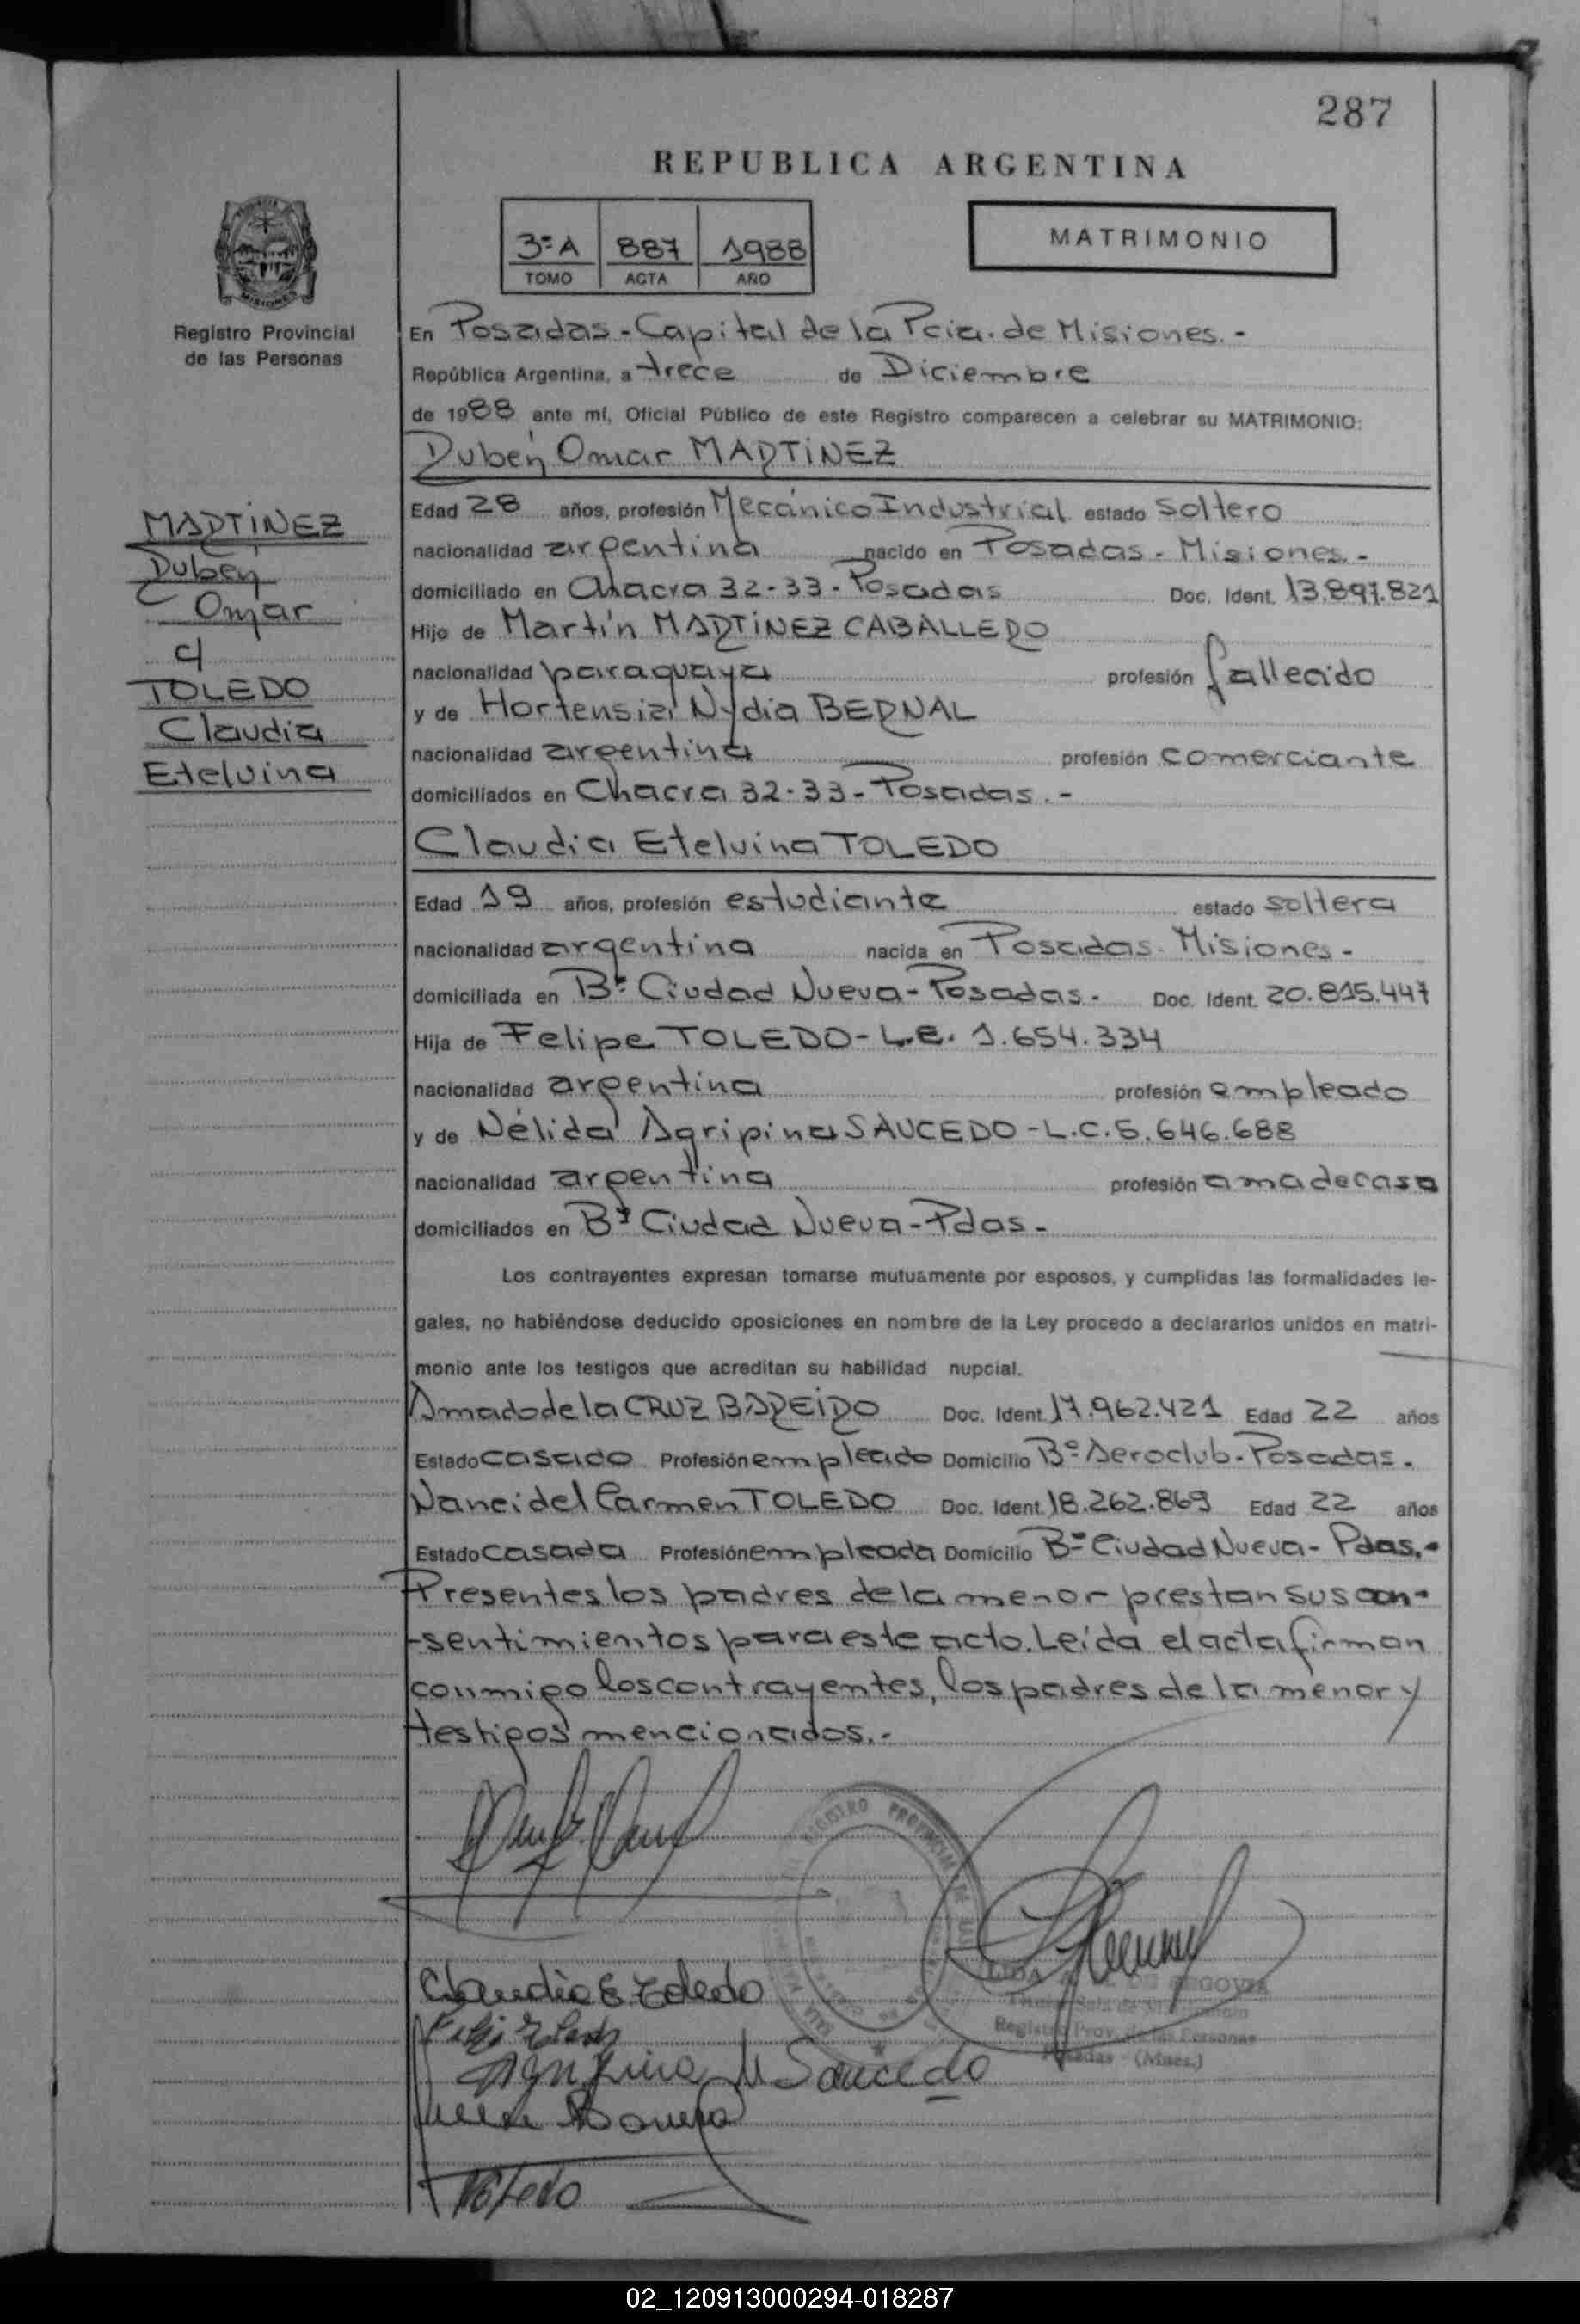 287
REPUBLICA ARGENTINA
3ºA 887 1988
TOMO ACTA AÑO
MATRIMONIO
Registro Provincial
de las Personas
En Posadas - Capital de la Pcia. de Misiones. -
República Argentina, a trece de Diciembre
de 1988 ante mí, Oficial Público de este Registro comparecen a celebrar su MATRIMONIO:
Rubén Omar MARTINEZ
MARTINEZ
Rubén
Omar
c/
TOLEDO
Claudia
Etelvina
Edad 28 años, profesión Mecánico Industrial estado soltero
nacionalidad argentina nacido en Posadas - Misiones. -
domiciliado en Chacra 32-33 - Posadas Doc. Ident. 13.897.821
Hijo de Martín MARTINEZ CABALLERO
nacionalidad paraguaya profesión fallecido
y de Hortensia Nydia BERNAL
nacionalidad argentina profesión comerciante
domiciliados en Chacra 32-33 - Posadas. -
Claudia Etelvina TOLEDO
Edad 19 años, profesión estudiante estado soltera
nacionalidad argentina nacida en Posadas - Misiones -
domiciliada en Bº Ciudad Nueva - Posadas - Doc. Ident. 20.815.447
Hija de Felipe TOLEDO - L.E. 1.654.334
nacionalidad argentina profesión empleado
y de Nélida Agripina SAUCEDO - L.C. 5.646.688
nacionalidad argentina profesión ama de casa
domiciliados en Bº Ciudad Nueva - Pdas -
Los contrayentes expresan tomarse mutuamente por esposos, y cumplidas las formalidades le-
gales, no habiéndose deducido oposiciones en nombre de la Ley procedo a declararlos unidos en matri-
monio ante los testigos que acreditan su habilidad nupcial.
Amado de la CRUZ BAREIRO Doc. Ident. 17.962.421 Edad 22 años
Estado casado Profesión empleado Domicilio Bº Aeroclub - Posadas.
Nanci del Carmen TOLEDO Doc. Ident. 18.262.869 Edad 22 años
Estado casada Profesión empleada Domicilio Bº Ciudad Nueva - Pdas. -
Presentes los padres de la menor prestan sus con-
-sentimientos para este acto. Leída el acta firman
conmigo los contrayentes, los padres de la menor y
testigos mencionados. -
REGISTRO PROVINCIAL DE
Claudia E Toledo
SEGOVIA
Registro Prov. de las Personas
Posadas - (Mnes.)
Agripina N Saucedo
Toledo
02_120913000294-018287